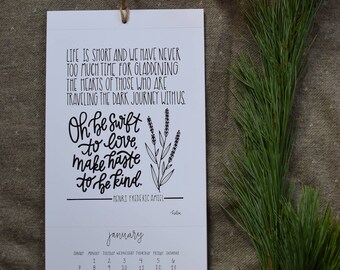 LIFE IS SHORT AND WE HAVE NEVER
TOO MUCH TIME FOR GLADDENING
THE HEARTS OF THOSE WHO ARE
TRAVELING THE DARK JOURNEY WITH US.
Oh be swift
to love,
make haste
to be kind.
HENRI FREDERIC AMIEL
january
SUNDAY MONDAY TUESDAY WEDNESDAY THURSDAY FRIDAY SATURDAY
1 2 3 4 5 6